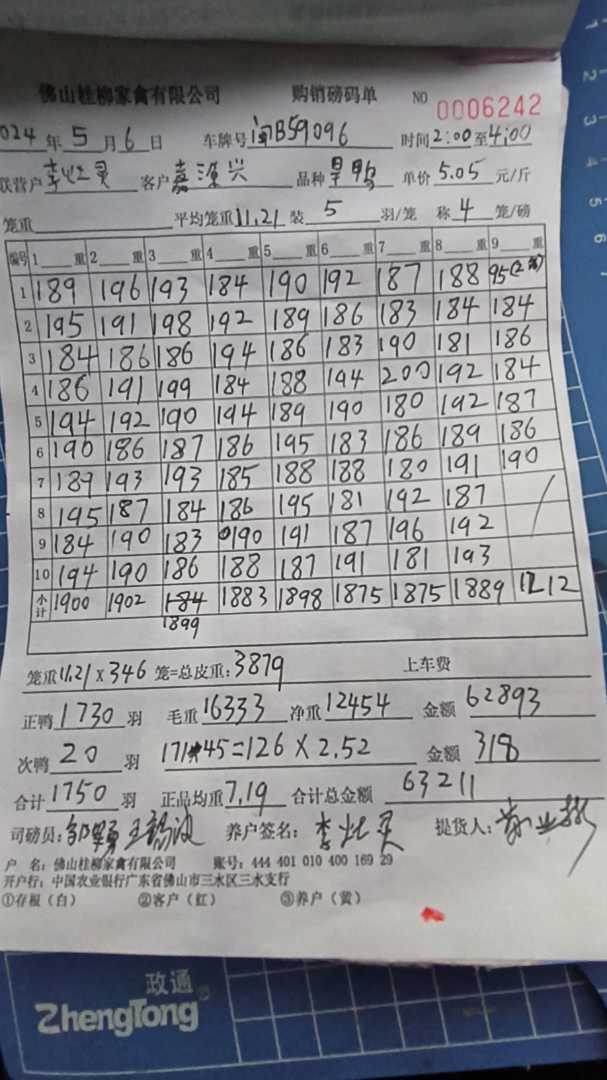 佛山桂柳家禽有限公司 购销磅码单 NO 0006242
024年5月6日 车牌号闽B59096 时间2:00至4:00
联营户 客户嘉源兴 品种旱鸭 单价5.05元/斤
笼重 平均笼重11.21装5羽/笼 称4笼/磅
编号 1 重 2 重 3 重 4 重 5 重 6 重 7 重 8 重 9 重
1 189 196 193 184 190 192 187 188 95(2笼)
2 195 191 198 192 189 186 183 184 184
3 184 186 186 194 186 183 190 181 186
4 186 191 199 184 188 194 200 192 184
5 194 192 190 194 189 190 180 192 187
6 190 186 187 186 195 183 186 189 186
7 189 193 193 185 188 188 180 191 190
8 195 187 184 186 195 181 192 187
9 184 190 183 190 191 187 196 192
10 194 190 186 188 187 191 181 193
小计 1900 1902 1884 1883 1898 1875 1875 1889 1212
1899
笼重11.21×346笼=总皮重:3879 上车费
正鸭1730羽 毛重16333净重12454 金额62893
次鸭20羽 171-45=126×2.52 金额318
合计1750羽 正品均重7.19合计总金额63211
司磅员: 养户签名: 提货人:
户 名:佛山桂柳家禽有限公司 账号:444 401 010 400 169 29
开户行:中国农业银行广东省佛山市三水区三水支行
①存根(白) ②客户(红) ③养户(黄)
政通
ZhengTong